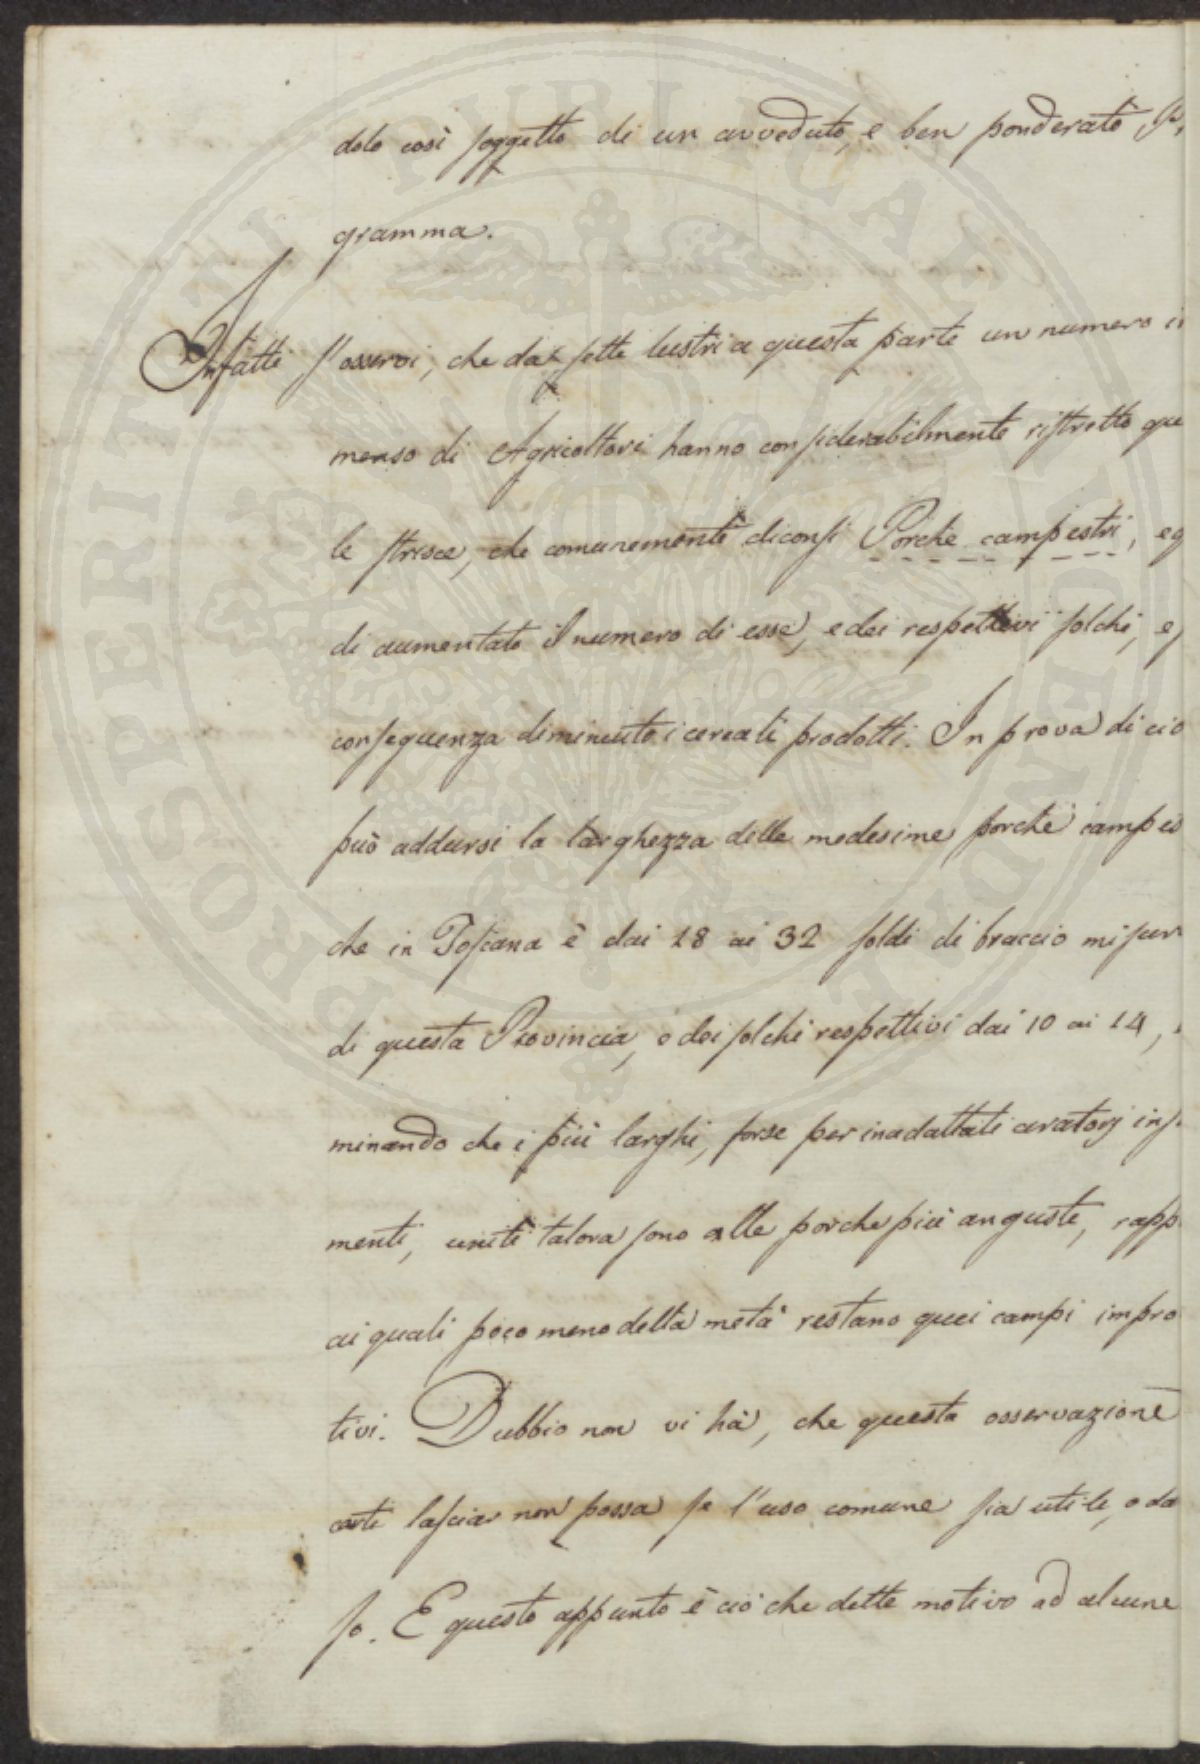 dolo così soggetto di un avveduto, e ben ponderato P
gramma.
Infatti s'osservi, che da sette lustri a questa parte un numero i
menso di Agricoltori hanno considerabilmente ristretto que
le strisce, che comunemente diconsi Porche campestri, e q
di aumentato il numero di esse, e dei respettivi solchi, e
conseguenza diminuito i cereali prodotti. In prova di ciò
può addursi la larghezza delle medesime porche campes
che in Toscana è dai 18 ai 32 soldi di braccio misur
di questa Provincia, e dei solchi respettivi dai 10 ai 14,
minando che i più larghi, forse per inadattati aratorj ins
menti, uniti talora sono alle porche più anguste, rapp
ai quali poco meno della metà restano quei campi impro
tivi. Dubbio non vi hà, che questa osservazione
certi lasciar non possa se l'uso comune sia utile, o da
so. E questo appunto è ciò che dette motivo ad alcune
PROSPERITATI PUBLICAE AUGENDAE